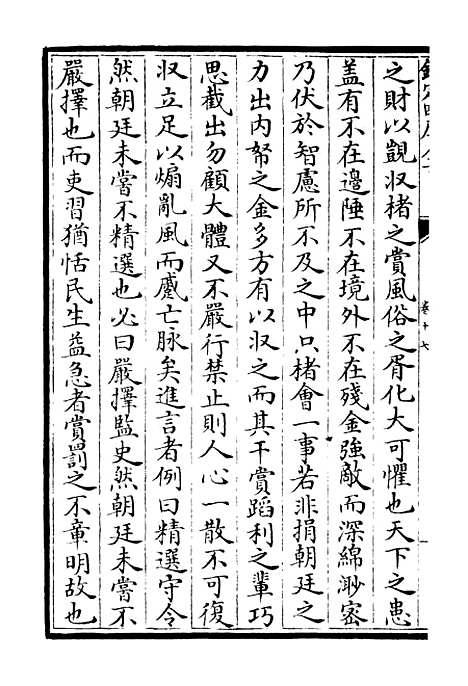 之財以覬収楮之賞風俗之胥化大可懼也天下之患
盖有不在邉陲不在境外不在殘金強敵而深綿渺宻
乃伏於智慮所不及之中只楮會一事若非捐朝廷之
力出内帑之金多方有以収之而其干賞蹈利之輩巧
思截出勿顧大體又不嚴行禁止則人心一散不可復
収立足以煽亂風而蹙亡脉矣進言者例曰精選守令
然朝廷未嘗不精選也必曰嚴擇監史然朝廷未嘗不
嚴擇也而吏習猶恬民生益急者賞罰之不章明故也
卷十七